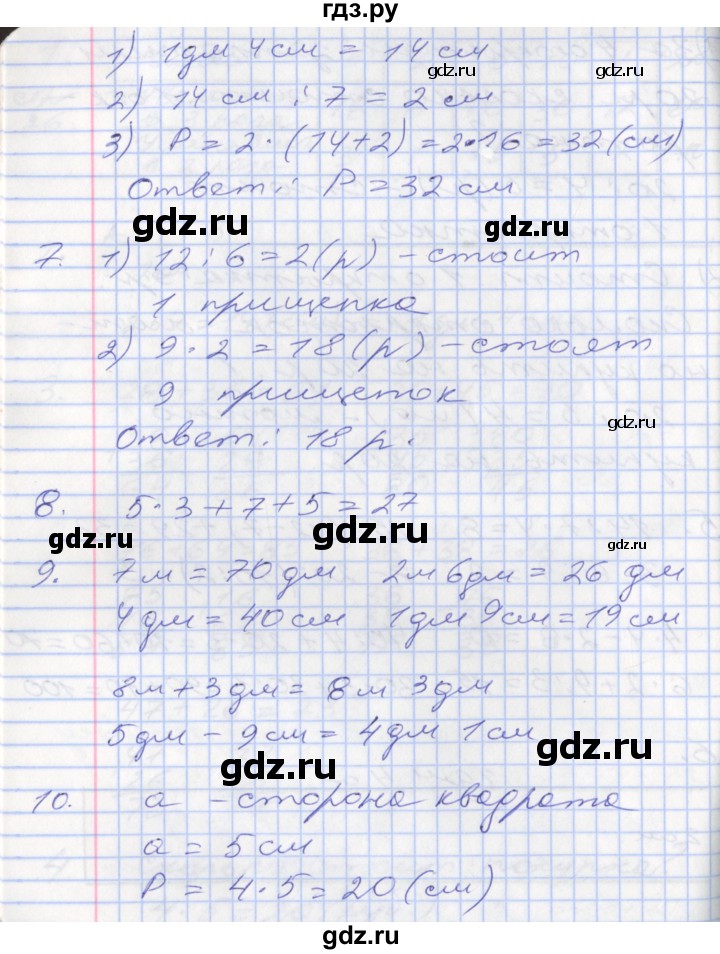 гдз.ру
1) 1дм 4см = 14 см
gdz.ru gdz.ru
2) 14 см : 7 = 2 см
3) P = 2 · (14+2) = 2·16 = 32 (см)
Ответ: P = 32 см
gdz.ru gdz.ru
7. 1) 12 : 6 = 2 (р) – стоит
1 прищепка
2) 9 · 2 = 18 (р) – стоят
gdz.ru gdz.ru
9 прищеток
Ответ: 18 р.
gdz.ru gdz.ru
8. 5·3+7+5=27
gdz.ru gdz.ru
9. 7м = 70 дм 2м 6дм = 26 дм
gdz.ru gdz.ru
4 дм = 40 см 1дм 9см = 19 см
8м + 3дм = 8м 3дм
gdz.ru
5дм – 9см = 4дм 1см
gdz.ru gdz.ru
10. a – сторона квадрата
a = 5 см
gdz.ru gdz.ru
P = 4·5 = 20 (см)
gdz.ru